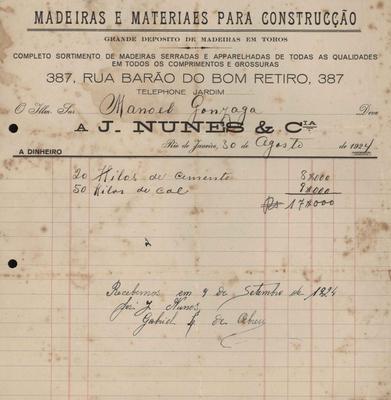 MADEIRAS E MATERIAES PARA CONSTRUCÇÃO
GRANDE DEPOSITO DE MADEIRAS EM TOROS
COMPLETO SORTIMENTO DE MADEIRAS SERRADAS E APPARELHADAS DE TODAS AS QUALIDADES
EM TODOS OS COMPRIMENTOS E GROSSURAS
387, RUA BARÃO DO BOM RETIRO, 387
TELEPHONE JARDIM
O Illm. Snr. Manoel Gonzaga Deve
A J. NUNES & Cia
A DINHEIRO Rio de Janeiro, 30 de Agosto de 1924
20 Kilos de cimento 8$000
50 Kilos de cal 9$000
Rs 17$000
Recebemos em 9 de Setembro de 1924
José J. Nunes
Gabriel de Abreu